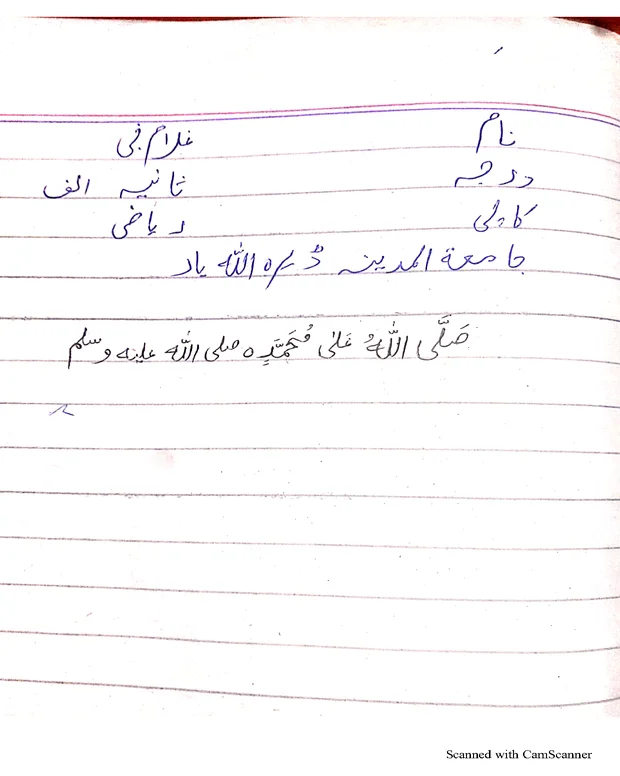 نام غلام نبی
درجہ ثانیہ الف
کاپی ریاضی
جامعۃ المدینہ ڈیرہ اللہ یار
صَلَّی اللہُ عَلٰی مُحَمَّدٍ صلی اللہ علیہ وسلم
Scanned with CamScanner